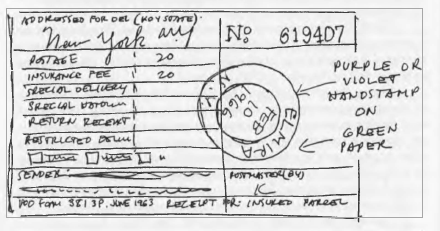 ADDRESSED FOR DEL (
New York NY
No 619407
POSTAGE 20
INSURANCE FEE 20
SPECIAL DELIVERY
SPECIAL
RETURN RECEIPT
RESTRICTED
SENDER:
POSTMASTER (BY)
K
POD FORM 3813P, JUNE 1963 RECEIPT FOR INSURED PARCEL
ELMIRA N.Y.
FEB
10
1966
PURPLE OR
VIOLET
HANDSTAMP
ON
GREEN
PAPER